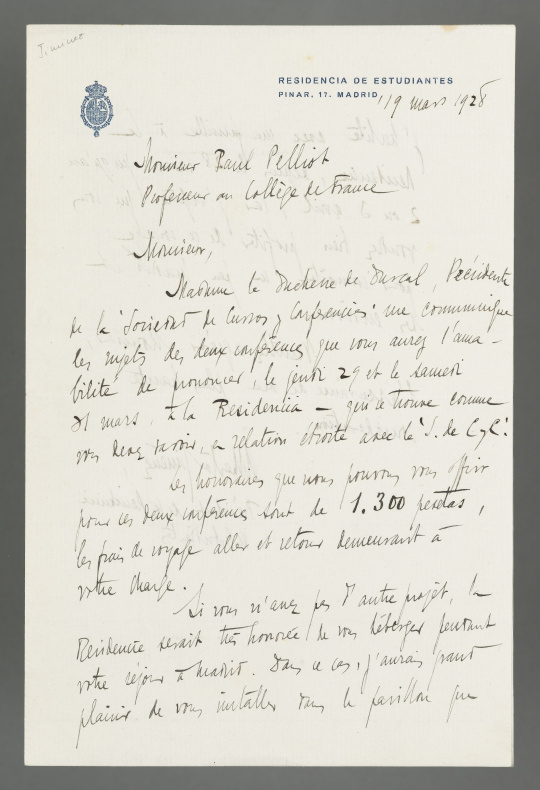 Jimenez
RESIDENCIA DE ESTUDIANTES
PINAR, 17. MADRID
19 mars 1928
Monsieur Paul Pelliot
Professeur au Collège de France
Monsieur,
Madame la Duchesse de Durcal, Présidente
de la "Sociedad de Cursos y Conferencias" me communique
les sujets des deux conférences que vous aurez l'ama-
bilité de prononcer le jeudi 29 et le samedi
31 mars, à la Residencia - qui se trouve comme
vous devez savoir, en relation étroite avec la "S. de C y C".
Les honoraires que nous pouvons vous offrir
pour ces deux conférences sont de 1.300 pesetas,
les frais de voyage aller et retour demeurant à
votre charge.
Si vous n'avez pas d'autre projet, la
Résidence serait très honorée de vous héberger pendant
votre séjour à Madrid. Dans ce cas, j'aurais grand
plaisir de vous installer dans le pavillon que